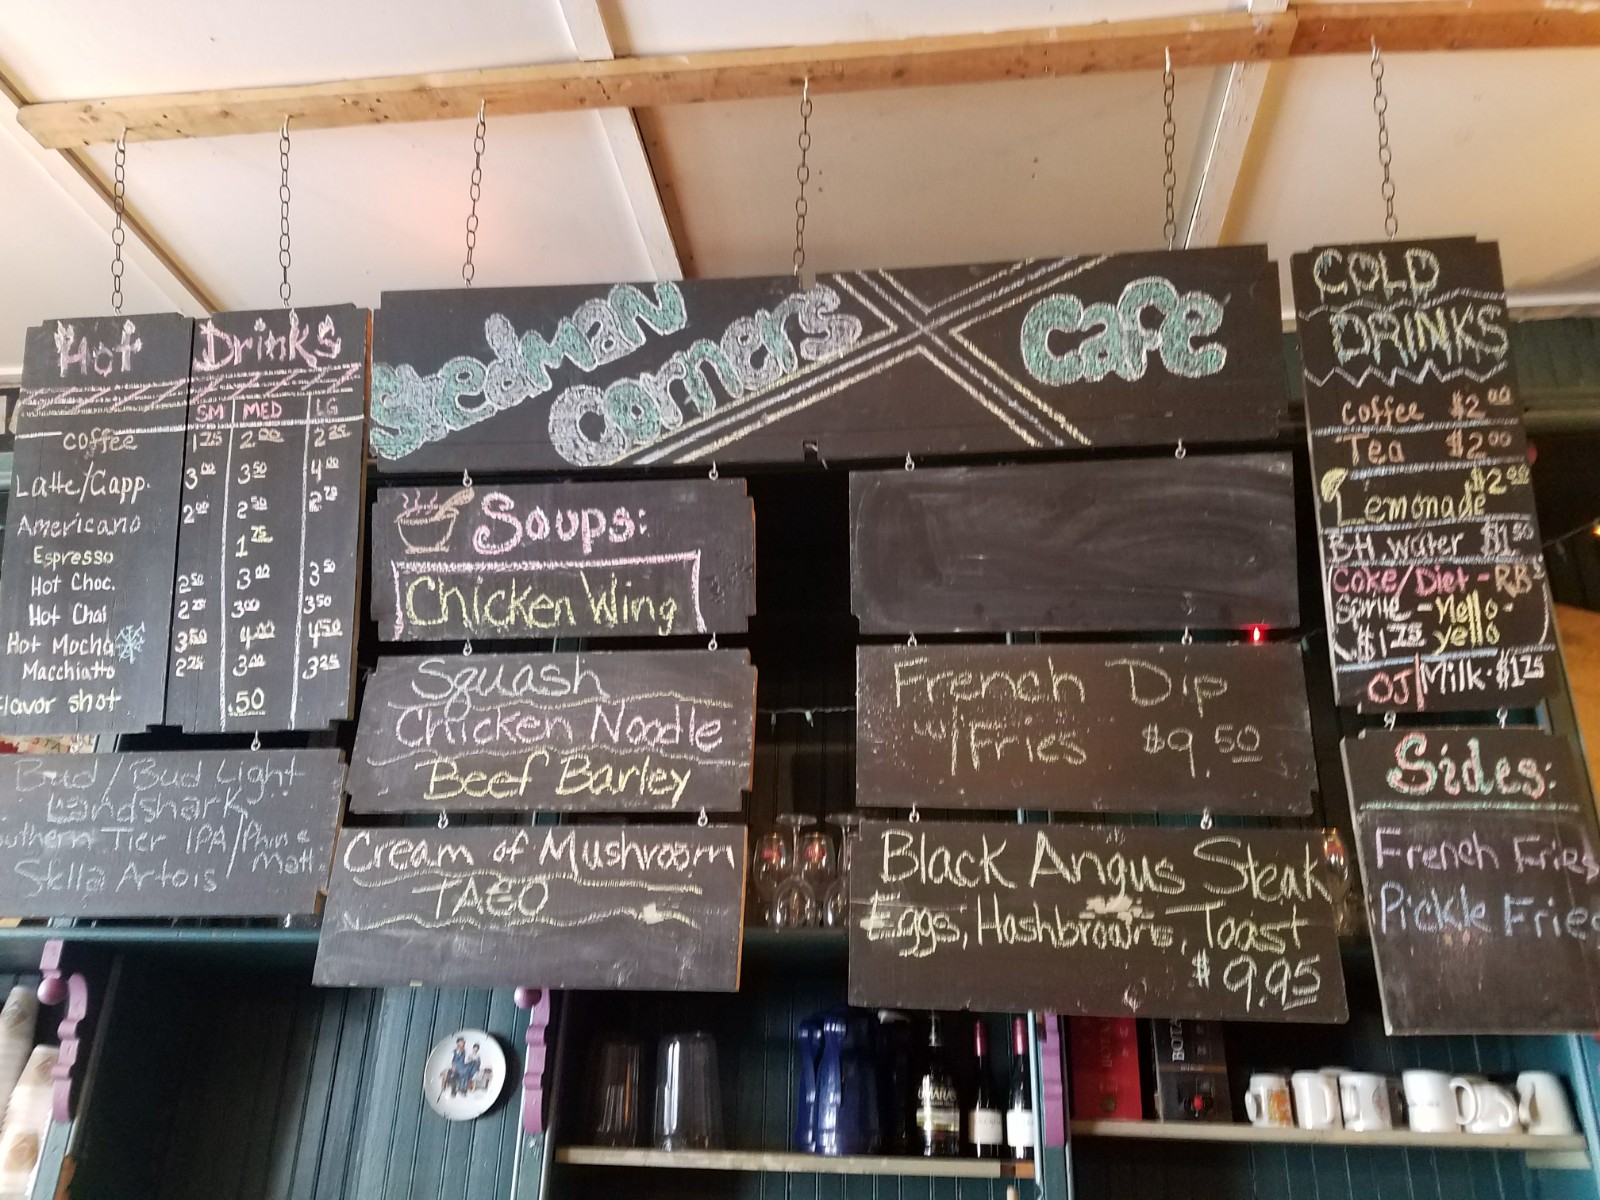 Hot Drinks
SM MED LG
coffee 1.75 2.00 2.25
Latte/Capp. 3.00 3.50 4.00
Americano 2.00 2.50 2.75
Espresso 1.75
Hot Choc. 2.50 3.00 3.50
Hot Chai 2.25 3.00 3.50
Hot Mocha 3.50 4.00 4.50
Macchiatto 2.25 3.00 3.25
Flavor shot .50
Bud/Bud Light
Landshark
Southern Tier IPA/
Stella Artois
Stedman
Corners
Cafe
Soups:
Chicken Wing
Squash
Chicken Noodle
Beef Barley
Cream of Mushroom
TACO
French Dip
w/Fries $9.50
Black Angus Steak
Eggs, Hashbrowns, Toast
$9.95
COLD
DRINKS
coffee $2.00
Tea $2.00
Lemonade $2.00
Btl. water $1.50
Coke/Diet - RB
Sprite - Mello -
$1.75 yello
OJ|Milk $1.75
Sides:
French Fries
Pickle Fries